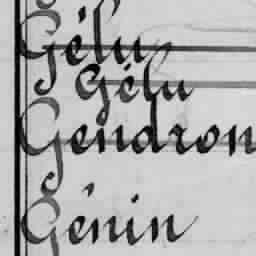 Gélu
Gélu
Gendron
Génin